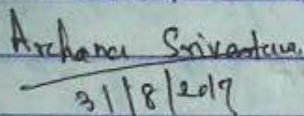 Archana Srivastava.
31/8/2017